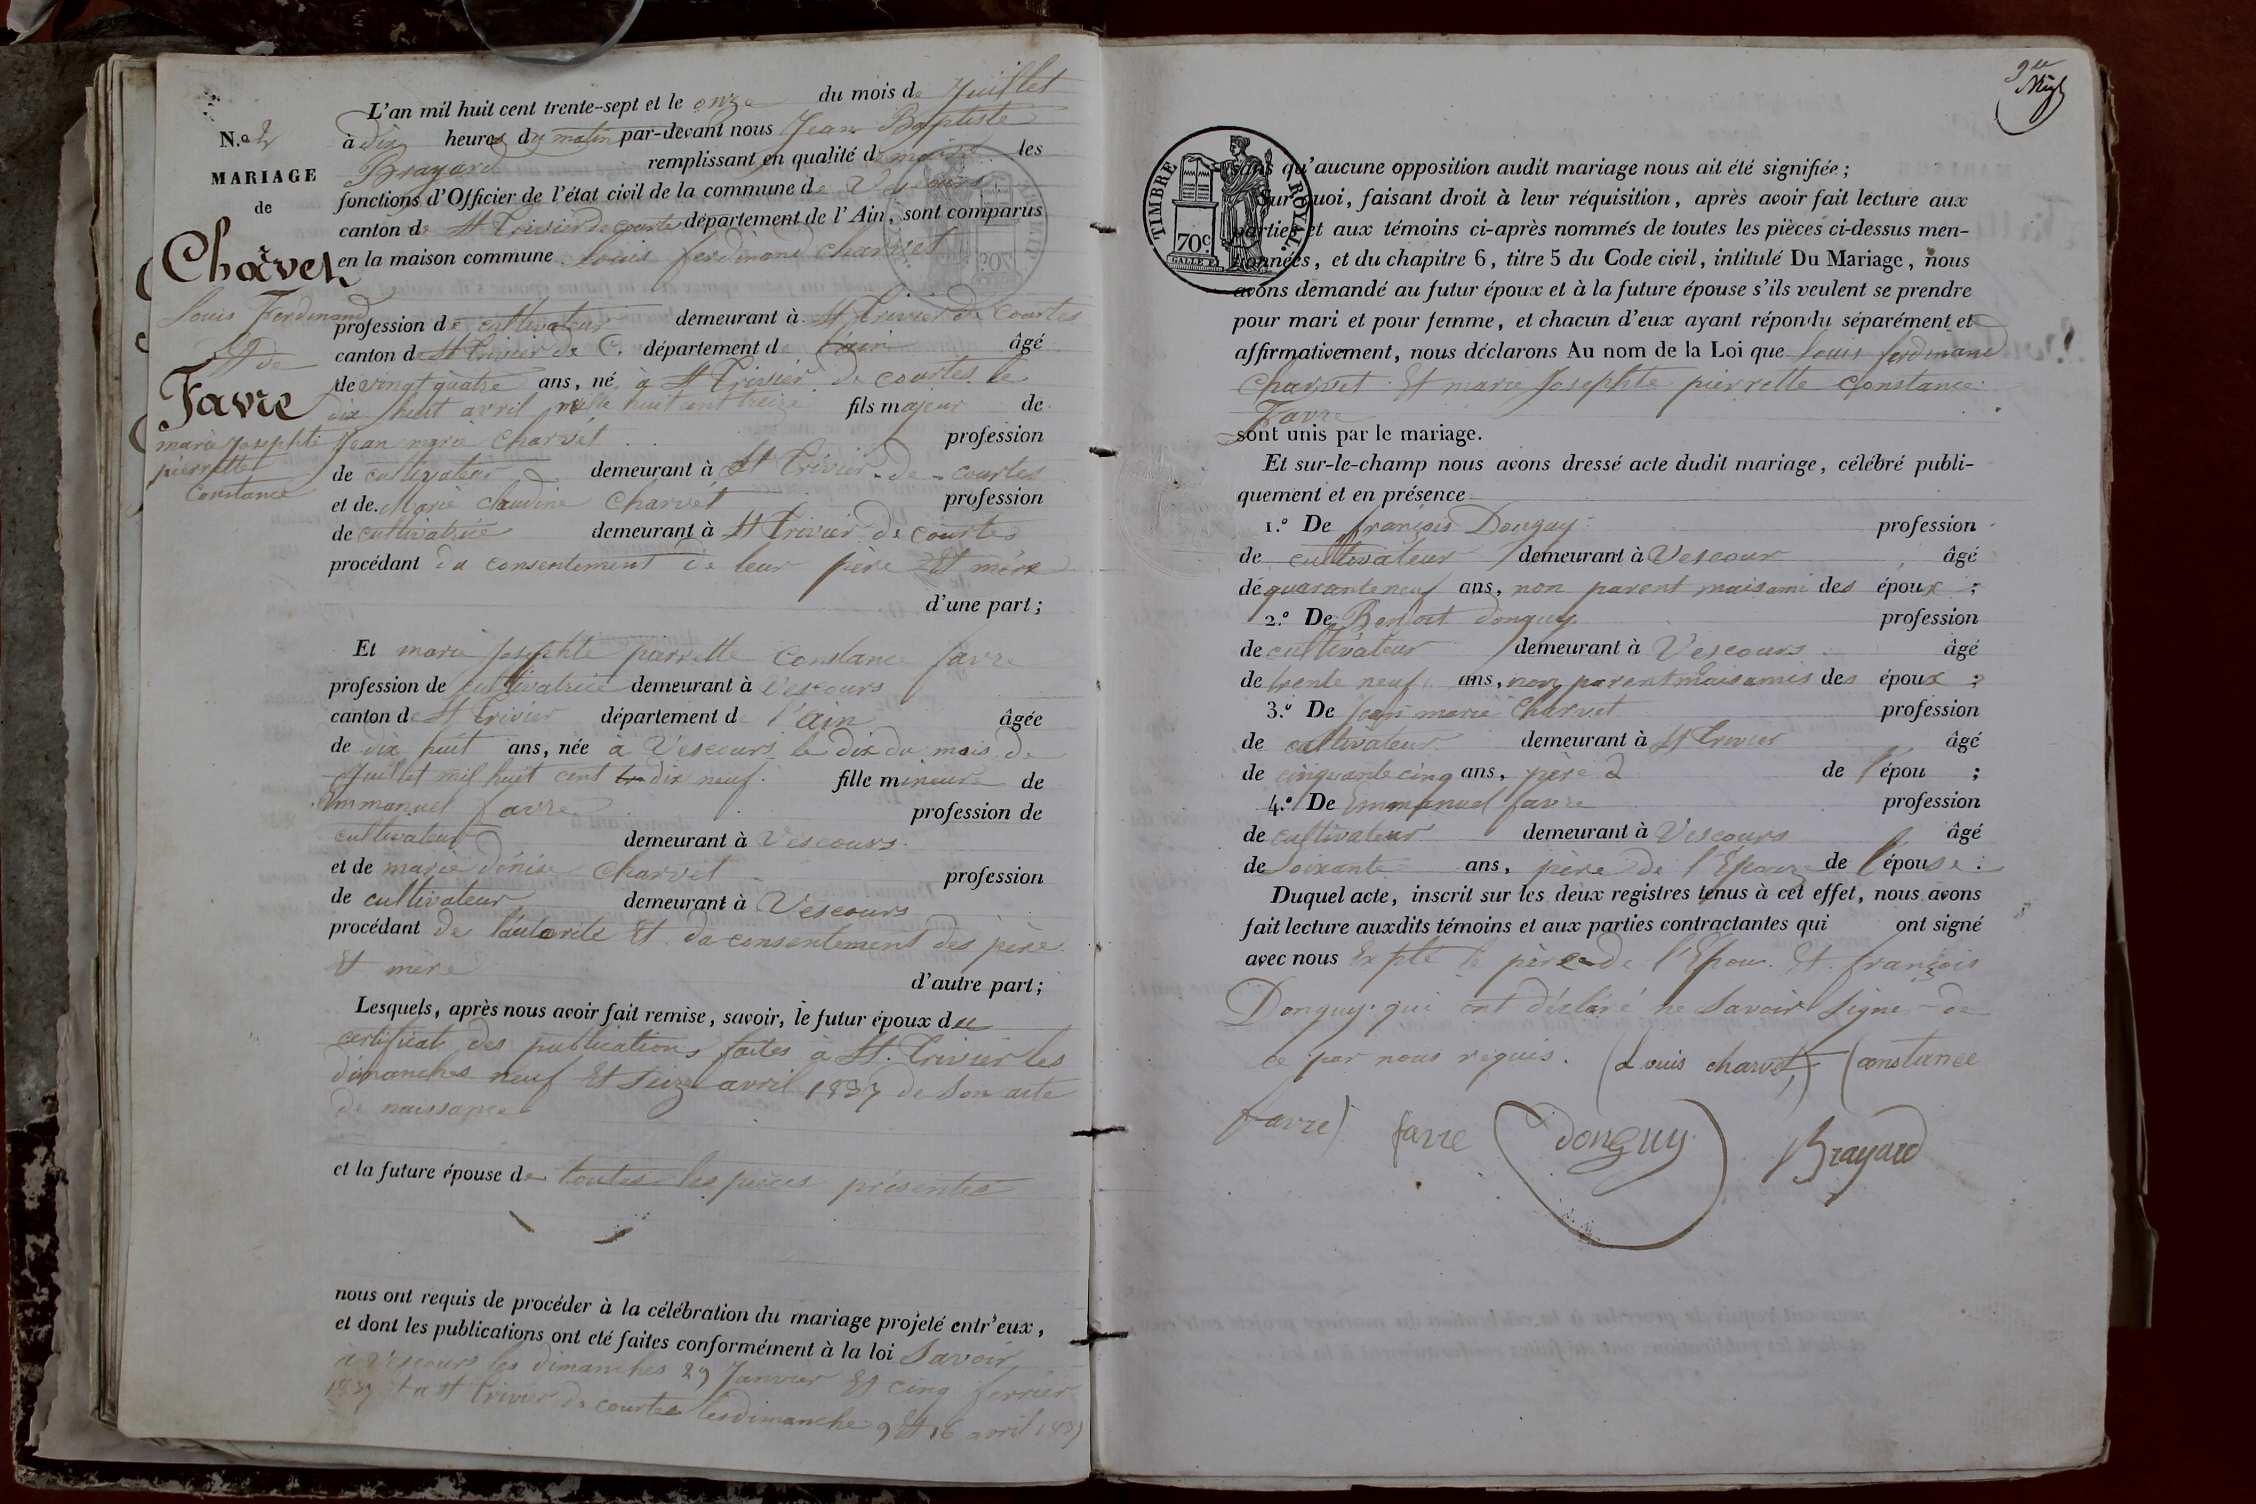 N.o 2
MARIAGE
de
Charvet
Louis Ferdinand
Et de
Favre
marie Josephte
pierrette
Constance
L'an mil huit cent trente-sept et le onze du mois de Juillet
à dix heures du matin par-devant nous Jean Baptiste
Brayard remplissant en qualité de maire les
fonctions d'Officier de l'état civil de la commune de Vescours
canton de St Trivier de courtes département de l'Ain, sont comparus
en la maison commune Louis ferdinand charvet
profession de cultivateur demeurant à St Trivier de Courtes
canton de St Trivier de C. département de l'ain âgé
de vingt quatre ans, né à St Trivier de courtes le
dix huit avril mille huit cent treize fils majeur de
Jean marie charvet profession
de cultivateur demeurant à St Trivier de courtes
et de Marie claudine Charvet profession
de cultivatrice demeurant à St Trivier de courtes
procédant du consentement de leur père Et mère
d'une part;
Et marie Josephte pierrette Constance favre
profession de cultivatrice demeurant à Vescours
canton de St Trivier département de l'ain âgée
de dix huit ans, née à Vescours le dix du mois de
Juillet mil huit cent dix neuf. fille mineure de
Emmanuel favre profession de
cultivateur demeurant à Vescours
et de marie dénise Charvet profession
de cultivateur demeurant à Vescours
procédant de l'autorité Et du consentement des père
Et mère d'autre part;
Lesquels, après nous avoir fait remise, savoir, le futur époux du
certificat des publications faites à St. Trivier les
dimanches neuf Et seize avril 1837 de son acte
de naissance
et la future épouse de toutes les pièces présentes
nous ont requis de procéder à la célébration du mariage projeté entr'eux,
et dont les publications ont été faites conformément à la loi Savoir
à Vescours les dimanches 29 Janvier Et cinq ferrier
1837 et a St trivier de courtes les dimanche 9 Et 16 avril 1837
TIMBRE ROYAL
70c.
sans qu'aucune opposition audit mariage nous ait été signifiée;
Sur quoi, faisant droit à leur réquisition, après avoir fait lecture aux
parties et aux témoins ci-après nommés de toutes les pièces ci-dessus men-
tionnées, et du chapitre 6, titre 5 du Code civil, intitulé Du Mariage, nous
avons demandé au futur époux et à la future épouse s'ils veulent se prendre
pour mari et pour femme, et chacun d'eux ayant répondu séparément et
affirmativement, nous déclarons Au nom de la Loi que Louis ferdinand
charvet Et marie Josephte pierrette constance
Favre
sont unis par le mariage.
Et sur-le-champ nous avons dressé acte dudit mariage, célébré publi-
quement et en présence
1.o De françois Donguy profession
de cultivateur demeurant à Vescour âgé
de quarante neuf ans, non parent mais ami des époux;
2.o De Benoit donguy profession
de cultivateur demeurant à Vescours âgé
de trente neuf ans, non parent mais amis des époux;
3.o De Jean marie Charvet profession
de cultivateur demeurant à St Trivier âgé
de cinquante cinq ans, père de l'épou;
4.o De Emmanuel favre profession
de cultivateur demeurant à Vescours âgé
de Soixante ans, père de l'Epouze de l'épouse:
Duquel acte, inscrit sur les deux registres tenus à cet effet, nous avons
fait lecture auxdits témoins et aux parties contractantes qui ont signé
avec nous Expté le père de l'Epou. Et françois
Donguy qui ont déclaré ne savoir signé de
ce par nous requis. (Louis charvet) (constance
favre) favre donguy Brayard